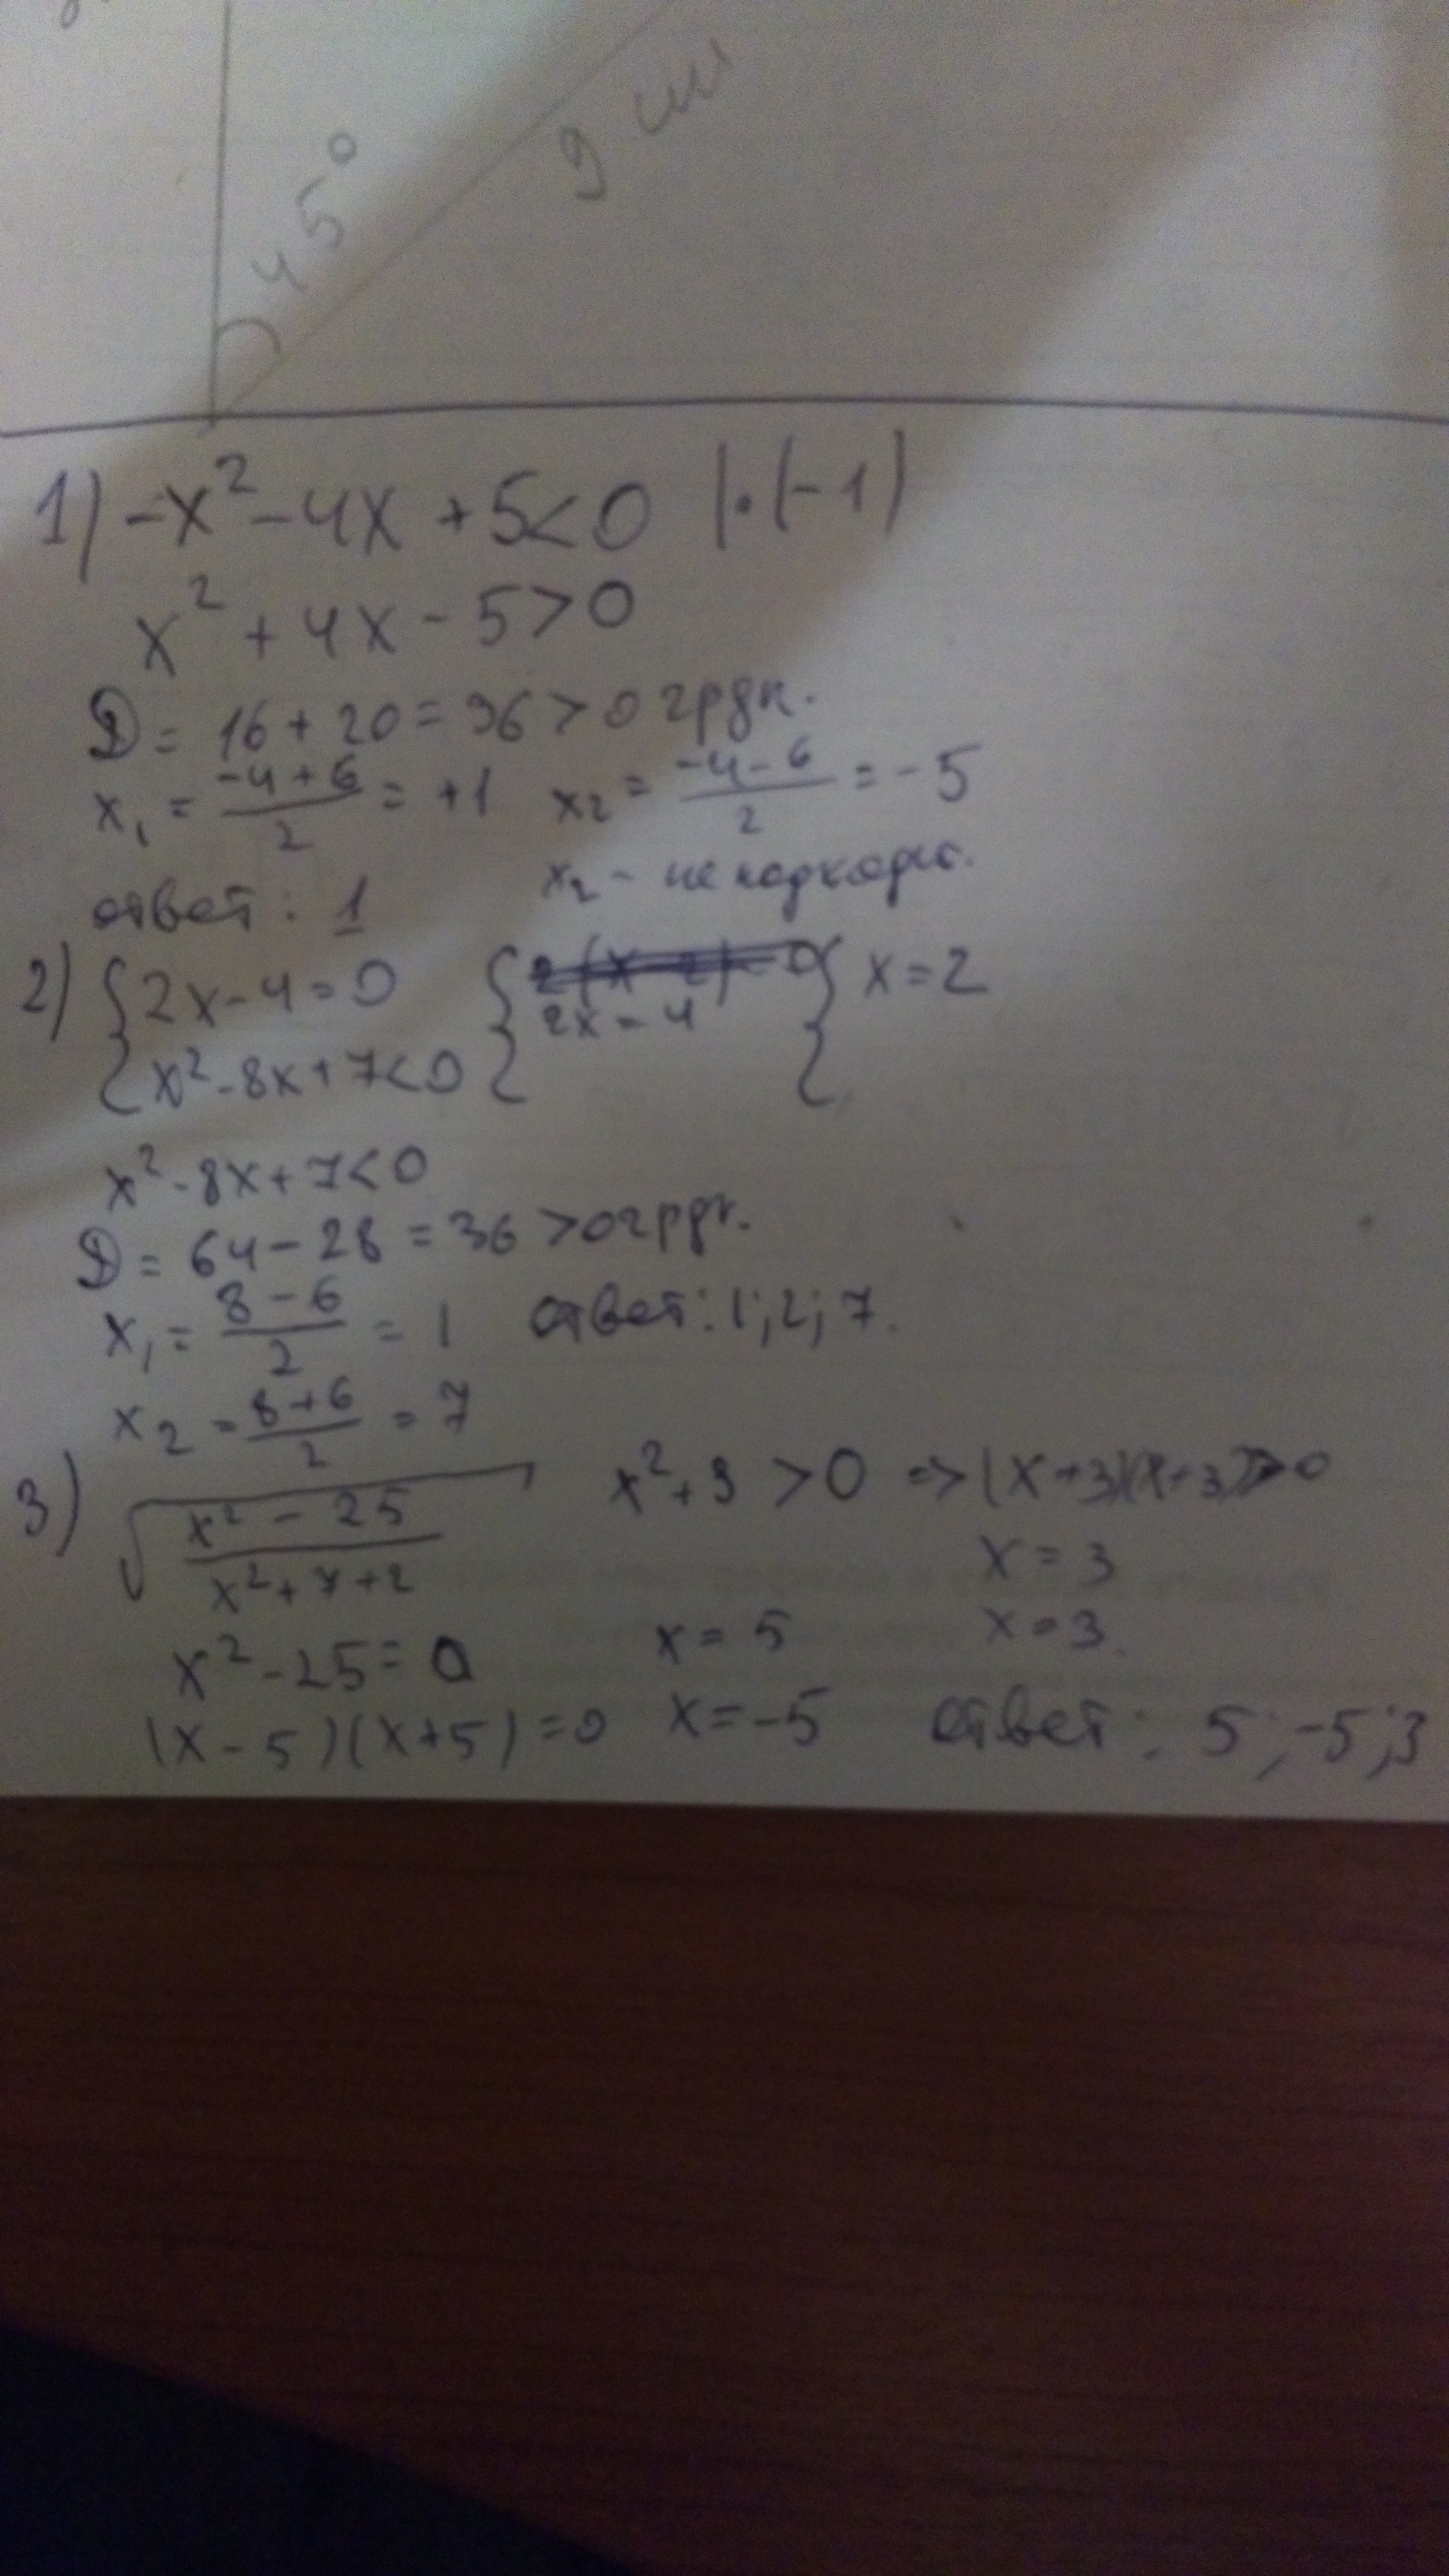 45°
9 см
1) -x² - 4x + 5 < 0 |·(-1)
x² + 4x - 5 > 0
D = 16 + 20 = 36 > 0 2рдк.
x₁ = (-4+6)/2 = +1 x₂ = (-4-6)/2 = -5
ответ: 1 x₂ - не подходит.
2) { 2x - 4 = 0 { 2x = 4 { x = 2
{ x² - 8x + 7 < 0
x² - 8x + 7 < 0
D = 64 - 28 = 36 > 0 2рдк.
x₁ = (8-6)/2 = 1 ответ: 1; 2; 7.
x₂ = (8+6)/2 = 7
3) √((x² - 25)/(x² + 7 + 2)) x² + 9 > 0 => (x+3)(x+3) > 0
x = 3
x² - 25 = 0 x = 5 x = 3.
(x - 5)(x + 5) = 0 x = -5 ответ: 5; -5; 3